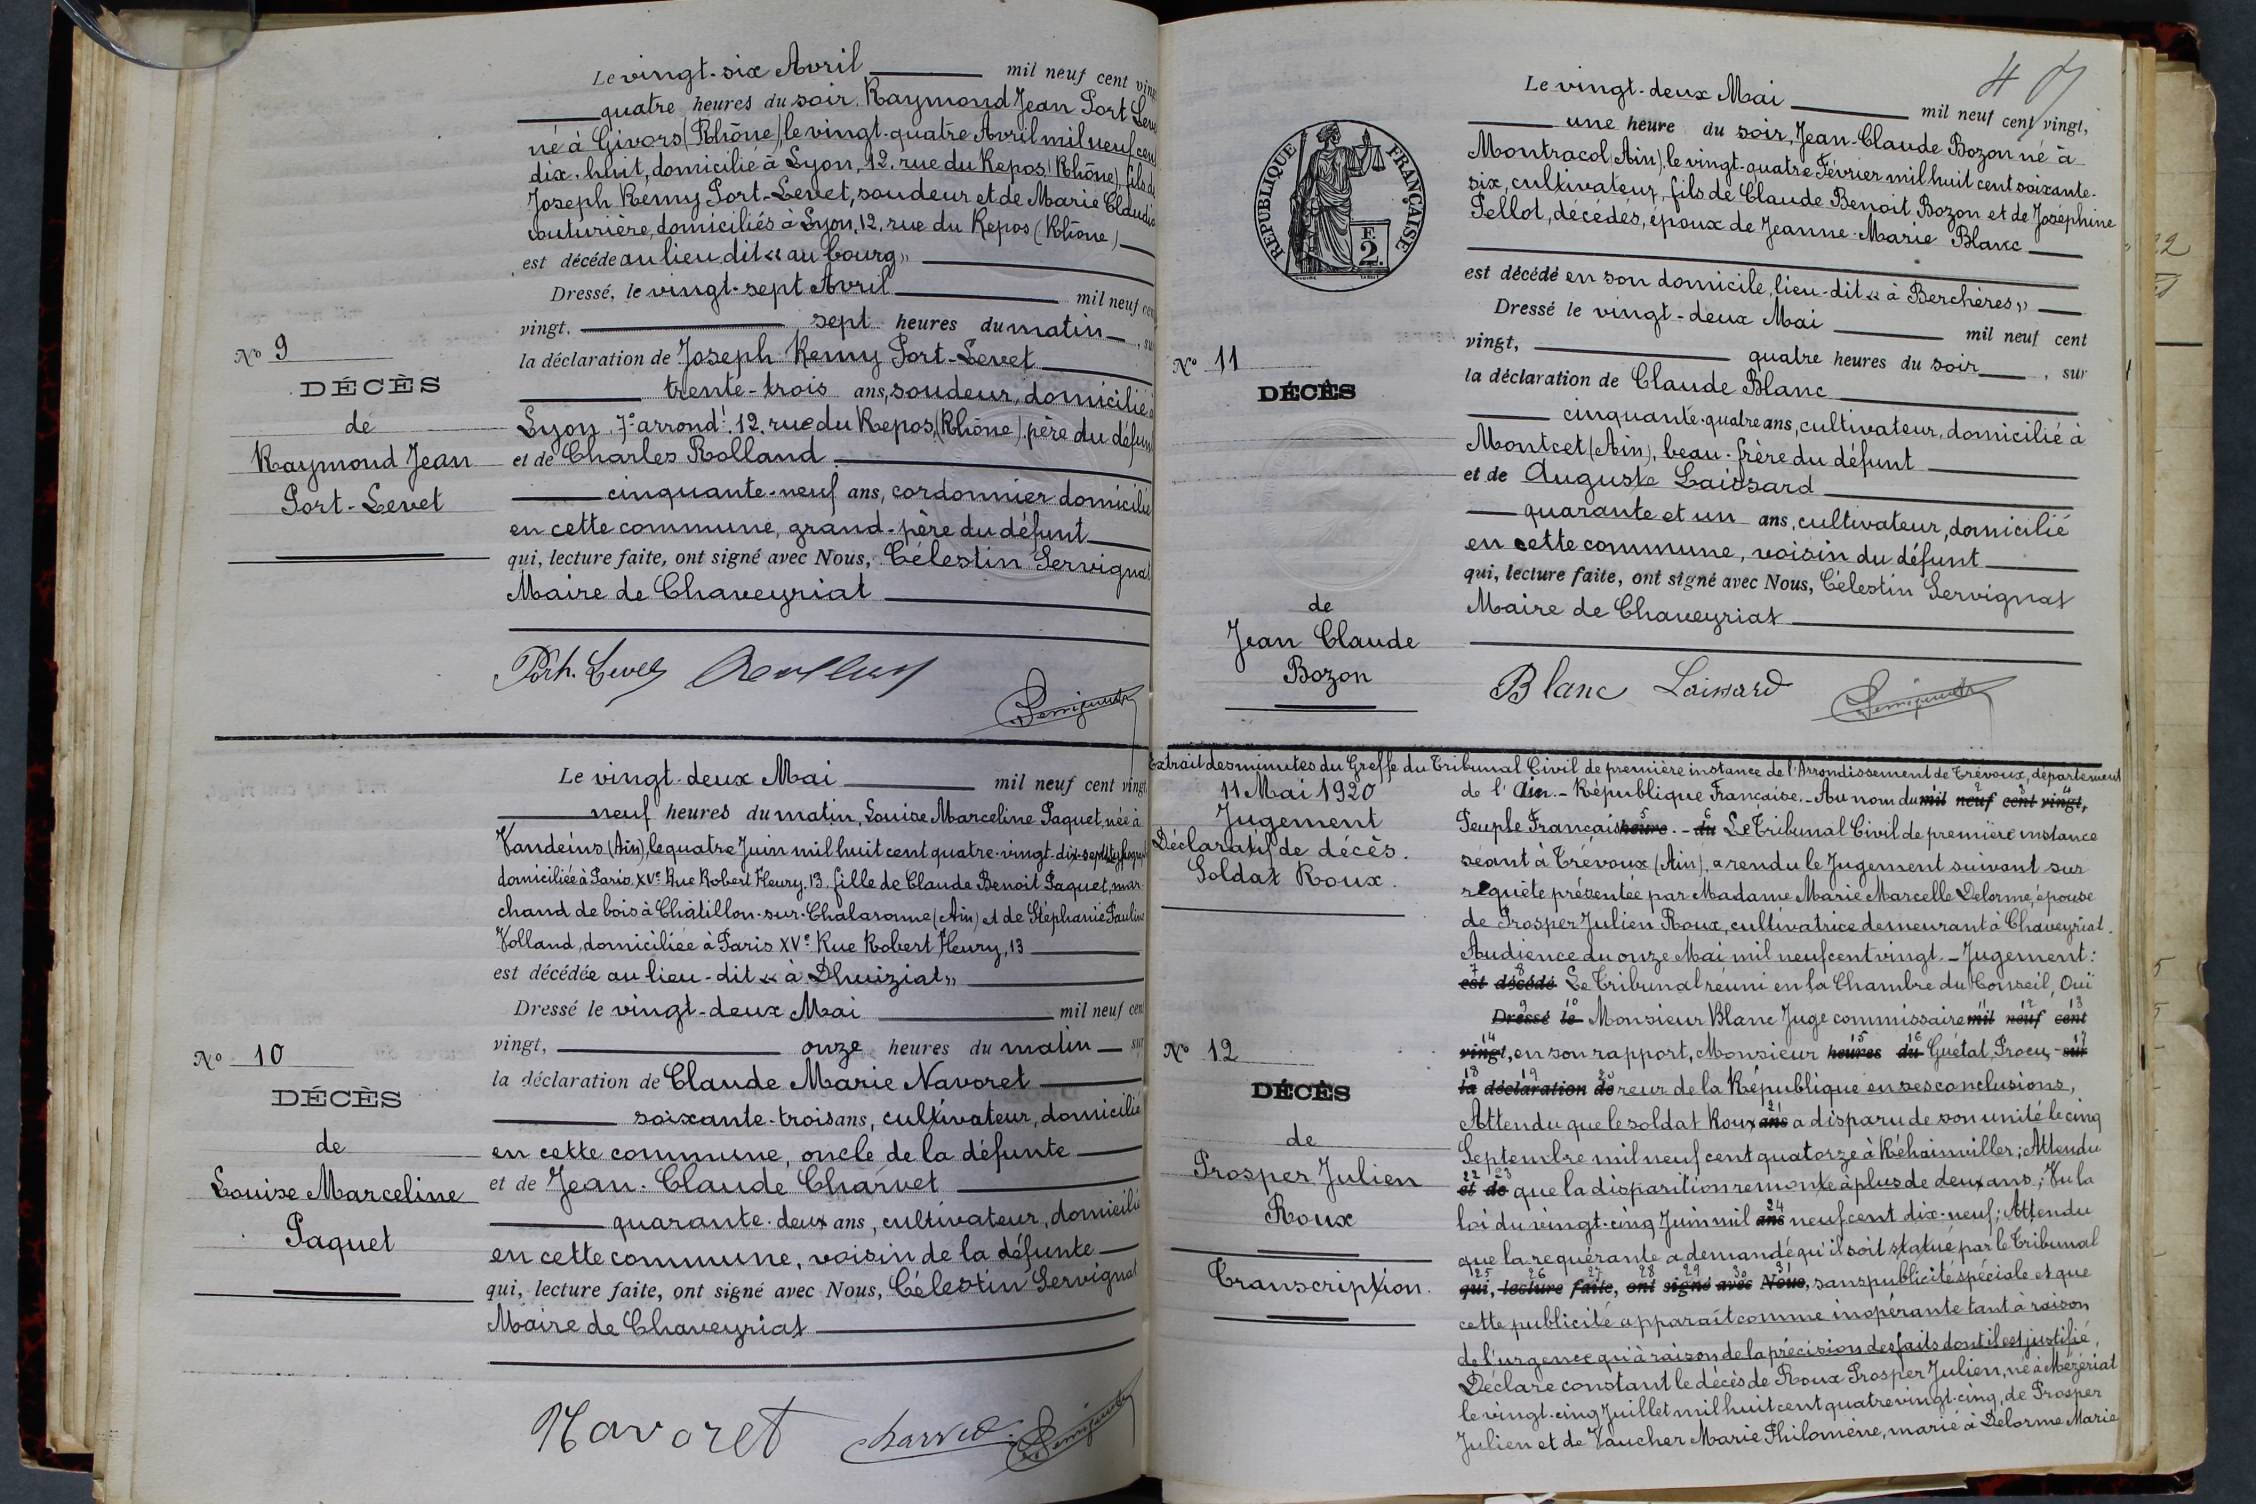 Le vingt-six Avril mil neuf cent vingt
quatre heures du soir, Raymond Jean Port Leve
né à Givors (Rhône), le vingt-quatre Avril mil neuf cen
dix-huit, domicilié à Lyon, 12, rue du Repos (Rhône), fils de
Joseph Remy Port-Levet, soudeur et de Marie Claudi
couturière, domiciliés à Lyon, 12, rue du Repos (Rhône)
est décédé au lieu dit « au bourg »
Dressé, le vingt-sept Avril mil neuf cen
vingt, sept heures du matin, su
la déclaration de Joseph Remy Port-Levet
trente-trois ans, soudeur, domicilié à
Lyon, 7e arrondt, 12, rue du Repos, (Rhône), père du défun
et de Charles Rolland
cinquante-neuf ans, cordonnier domicilié
en cette commune, grand-père du défunt
qui, lecture faite, ont signé avec Nous, Célestin Servignat
Maire de Chaveyriat
No 9
DÉCÈS
de
Raymond Jean
Port-Levet
Le vingt-deux Mai mil neuf cent vingt
neuf heures du matin, Louise Marceline Paquet, née à
Vandeins (Ain), le quatre Juin mil huit cent quatre-vingt-dix-sept,
domiciliée à Paris, XVe Rue Robert Fleury, 13, fille de Claude Benoit Paquet, mar-
chand de bois à Châtillon-sur-Chalaronne (Ain) et de Stéphanie Pauline
Volland, domiciliée à Paris XVe Rue Robert Fleury, 13
est décédée au lieu-dit « à Dhuiziat »
Dressé le vingt-deux Mai mil neuf cen
vingt, onze heures du matin sur
la déclaration de Claude Marie Navoret
soixante-trois ans, cultivateur, domicilié
en cette commune, oncle de la défunte
et de Jean-Claude Charvet
quarante-deux ans, cultivateur, domicilié
en cette commune, voisin de la défunte
qui, lecture faite, ont signé avec Nous, Célestin Servignat
Maire de Chaveyriat
Navoret Charvet
No 10
DÉCÈS
de
Louise Marceline
Paquet
Le vingt-deux Mai mil neuf cent vingt,
une heure du soir, Jean-Claude Bozon né à
Montracol (Ain), le vingt-quatre Février mil huit cent soixante-
six, cultivateur, fils de Claude Benoit Bozon et de Joséphine
Pellot, décédés, époux de Jeanne-Marie Blanc
est décédé en son domicile, lieu-dit « à Berchères »
Dressé le vingt-deux Mai mil neuf cent
vingt, quatre heures du soir, sur
la déclaration de Claude Blanc
cinquante-quatre ans, cultivateur, domicilié à
Montcet (Ain), beau-frère du défunt
et de Auguste Laissard
quarante et un ans, cultivateur, domicilié
en cette commune, voisin du défunt
qui, lecture faite, ont signé avec Nous, Célestin Servignat
Maire de Chaveyriat
Blanc Laissard
RÉPUBLIQUE FRANÇAISE
2F.
No 11
DÉCÈS
de
Jean Claude
Bozon
Extrait des minutes du Greffe du Tribunal Civil de première instance de l'Arrondissement de Trévoux, département
de l'Ain. - République Française. - Au nom du mil neuf cent vingt,
Peuple Français heure. - du Le Tribunal Civil de première instance
séant à Trévoux (Ain), a rendu le Jugement suivant sur
requête présentée par Madame Marie Marcelle Delorme, épouse
de Prosper Julien Roux, cultivatrice demeurant à Chaveyriat.
Audience du onze Mai mil neuf cent vingt. - Jugement:
est décédé Le Tribunal réuni en la Chambre du Conseil, Ouï
Dressé le Monsieur Blanc Juge commissaire mil neuf cent
vingt, en son rapport, Monsieur heures du Guétat, Procu- sur
la déclaration de reur de la République en ses conclusions,
Attendu que le soldat Roux ans a disparu de son unité le cinq
Septembre mil neuf cent quatorze à Réhainviller; Attendu
et de que la disparition remonte à plus de deux ans; Vu la
loi du vingt-cinq Juin mil ans neuf cent dix-neuf; Attendu
que la requérante a demandé qu'il soit statué par le Tribunal
qui, lecture faite, ont signé avec Nous, sans publicité spéciale et que
cette publicité apparaît comme inopérante tant à raison
de l'urgence qu'à raison de la précision des faits dont il est justifié,
Déclare constant le décès de Roux Prosper Julien, né à Mézériat
le vingt-cinq Juillet mil huit cent quatre vingt-cinq, de Prosper
Julien et de Vaucher Marie Philomène, marié à Delorme Marie
11 Mai 1920
Jugement
Déclaratif de décès.
Soldat Roux.
No 12
DÉCÈS
de
Prosper Julien
Roux
Transcription.